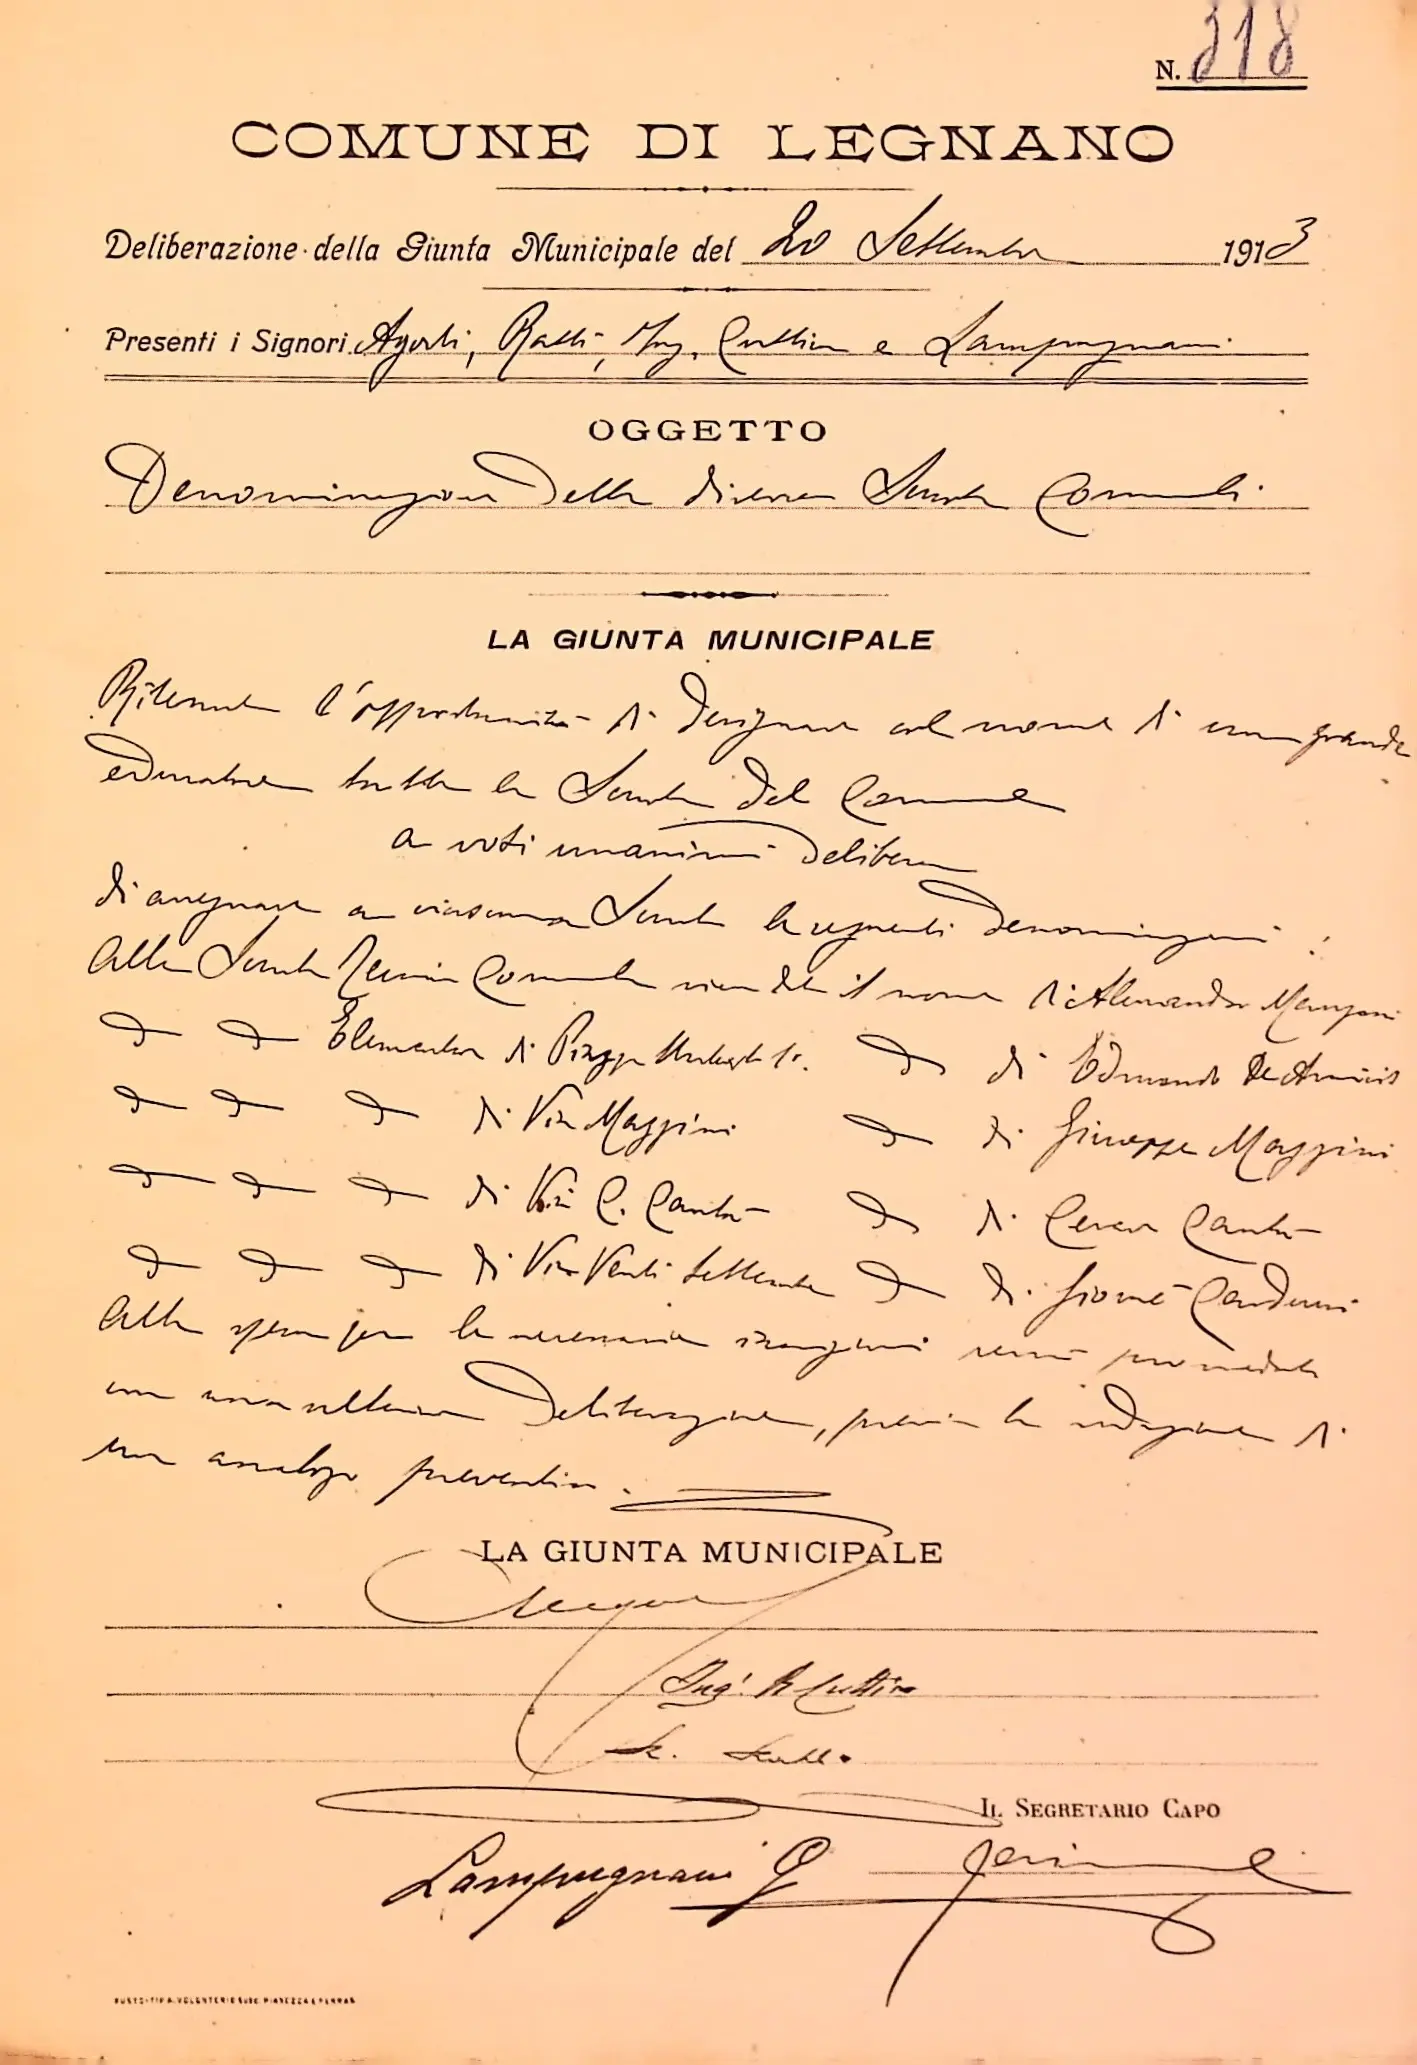 N. 318
COMUNE DI LEGNANO
Deliberazione della Giunta Municipale del 20 Settembre 1913
Presenti i Signori Agosti, Ratti, Ing. Cuttica e Lampugnani
OGGETTO
Denominazione delle diverse Scuole Comunali
LA GIUNTA MUNICIPALE
Ritenuta l'opportunità di designare col nome di un grande
educatore tutte le Scuole del Comune
a voti unanimi delibera
di assegnare a ciascuna Scuola le seguenti denominazioni:
Alla Scuola Comunale vien dato il nome di Alessandro Manzoni
" " Elementare di Piazza Umberto Iº. " di Edmondo De Amicis
" " " di Via Mazzini " di Giuseppe Mazzini
" " " di Via C. Cantù " di Cesare Cantù
" " " di Via Venti Settembre " di Giosuè Carducci
Alla spesa per le necessarie iscrizioni verrà provveduto
con una ulteriore deliberazione, previa la redazione di
un analogo preventivo.
LA GIUNTA MUNICIPALE
Ing. Cuttica
IL SEGRETARIO CAPO
Lampugnani G